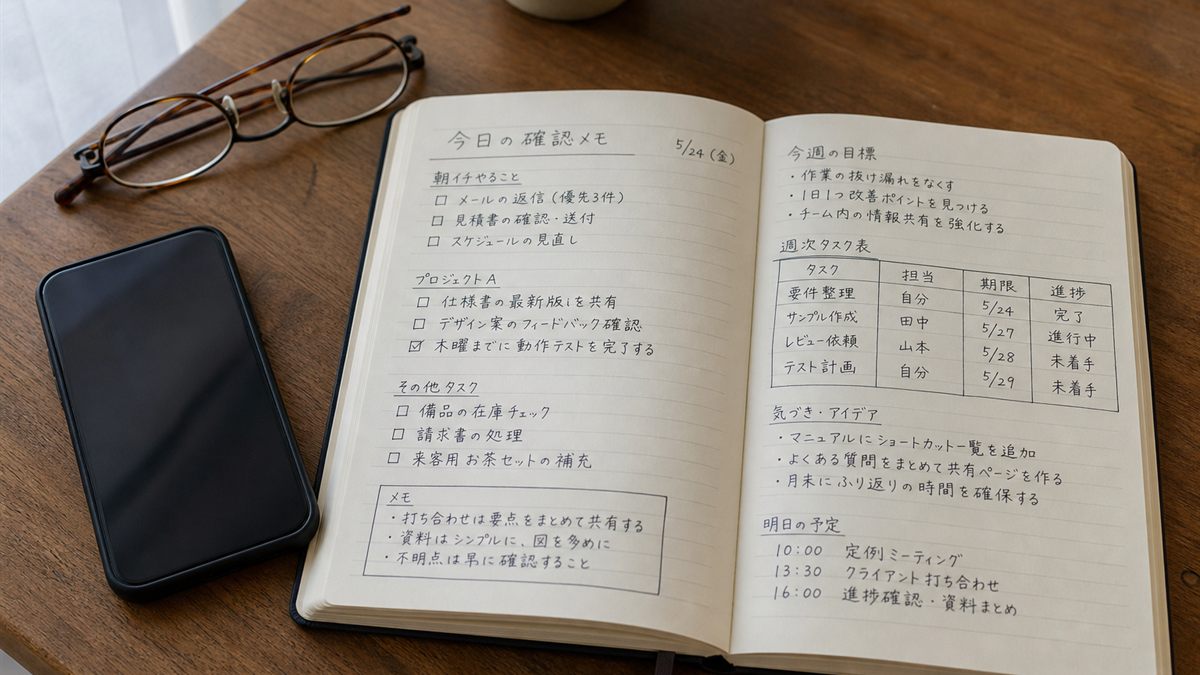 今日の確認メモ
5/24(金)
朝イチやること
□ メールの返信(優先3件)
□ 見積書の確認・送付
□ スケジュールの見直し
プロジェクトA
□ 仕様書の最新版を共有
□ デザイン案のフィードバック確認
☑ 木曜までに動作テストを完了する
その他タスク
□ 備品の在庫チェック
□ 請求書の処理
□ 来客用お茶セットの補充
メモ
・打ち合わせは要点をまとめて共有する
・資料はシンプルに、図を多めに
・不明点は早に確認すること
今週の目標
・作業の抜け漏れをなくす
・1日1つ改善ポイントを見つける
・チーム内の情報共有を強化する
週次タスク表
タスク 担当 期限 進捗
要件整理 自分 5/24 完了
サンプル作成 田中 5/27 進行中
レビュー依頼 山本 5/28 未着手
テスト計画 自分 5/29 未着手
気づき・アイデア
・マニュアルにショートカット一覧を追加
・よくある質問をまとめて共有ページを作る
・月末にふり返りの時間を確保する
明日の予定
10:00 定例ミーティング
13:30 クライアント打ち合わせ
16:00 進捗確認・資料まとめ